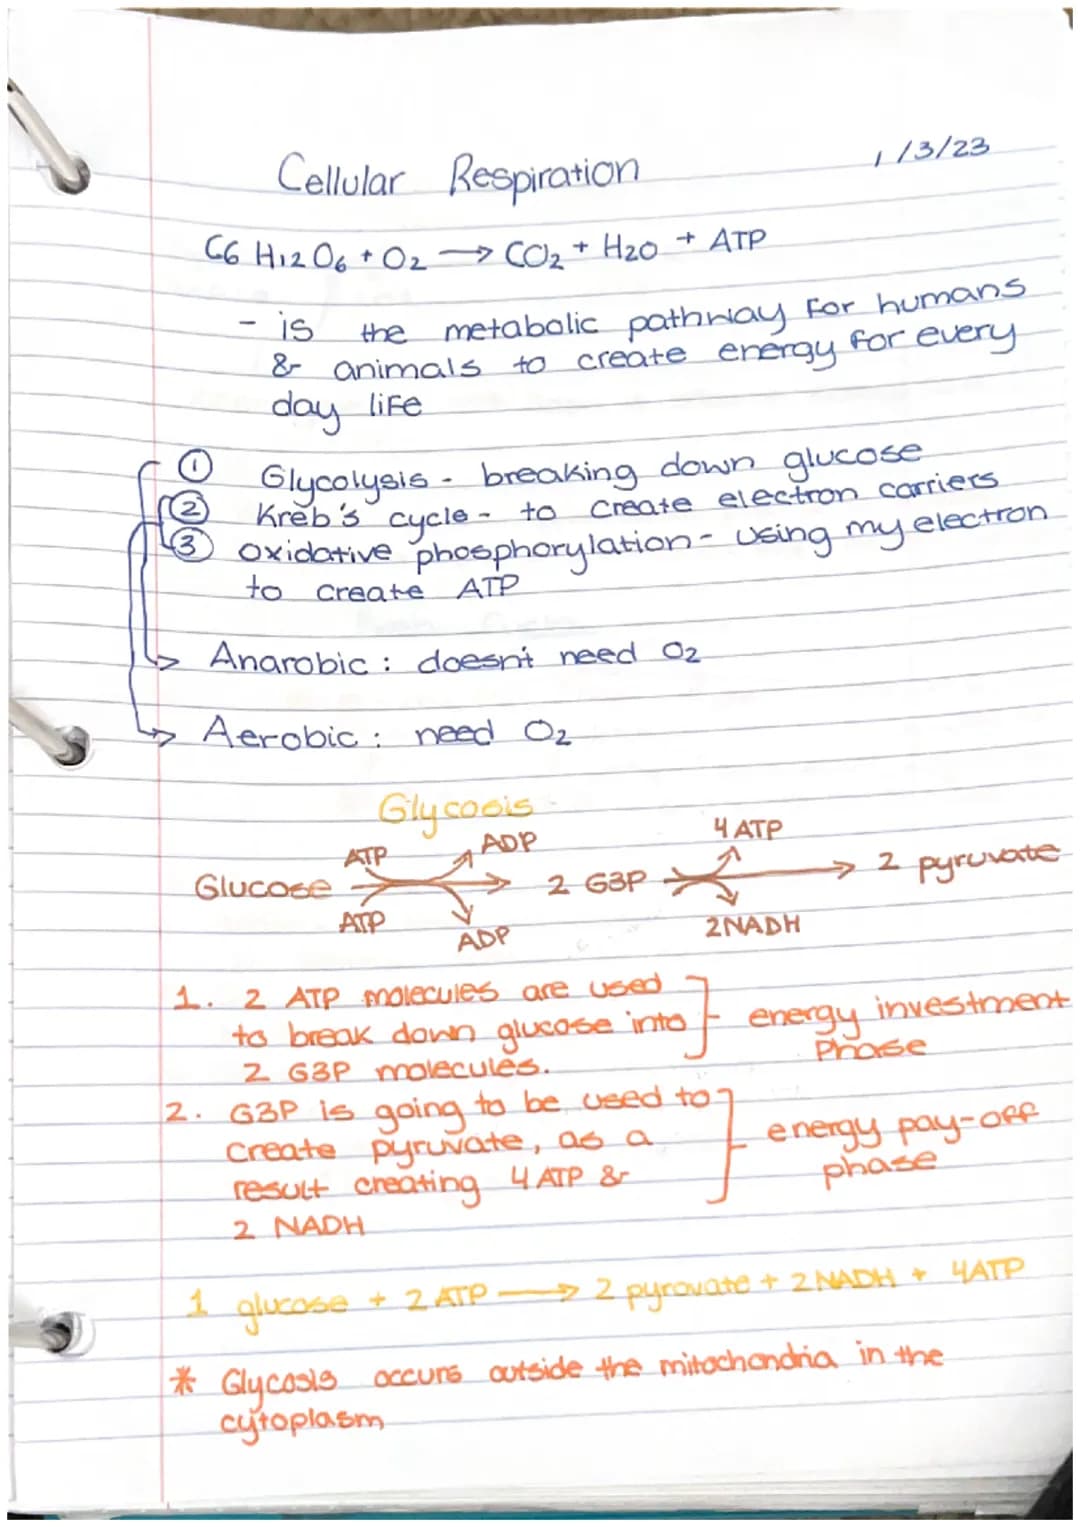 Cellular Respiration 1/3/23
C6 H12 O6 + O2 → CO2 + H2O + ATP
- is the metabolic pathway for humans
& animals to create energy for every
day life
① Glycolysis - breaking down glucose
② Kreb's cycle - to create electron carriers
③ oxidative phosphorylation - using my electron
to create ATP
→ Anarobic : doesn't need O2
→ Aerobic : need O2
Glycosis
ATP ADP 4 ATP
Glucose → 2 G3P → 2 pyruvate
ATP ADP 2NADH
1. 2 ATP molecules are used
to break down glucose into energy investment
2 G3P molecules. Phase
2. G3P is going to be used to
create pyruvate, as a energy pay-off
result creating 4 ATP & phase
2 NADH
1 glucose + 2 ATP → 2 pyrovate + 2 NADH + 4ATP
* Glycosis occurs outside the mitochondria in the
cytoplasm